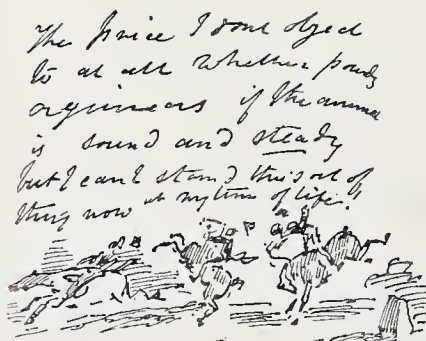 The price I dont object
to at all whether pounds
or guineas if the animal
is sound and steady
but I can't stand this sort of
thing now at my time of life!